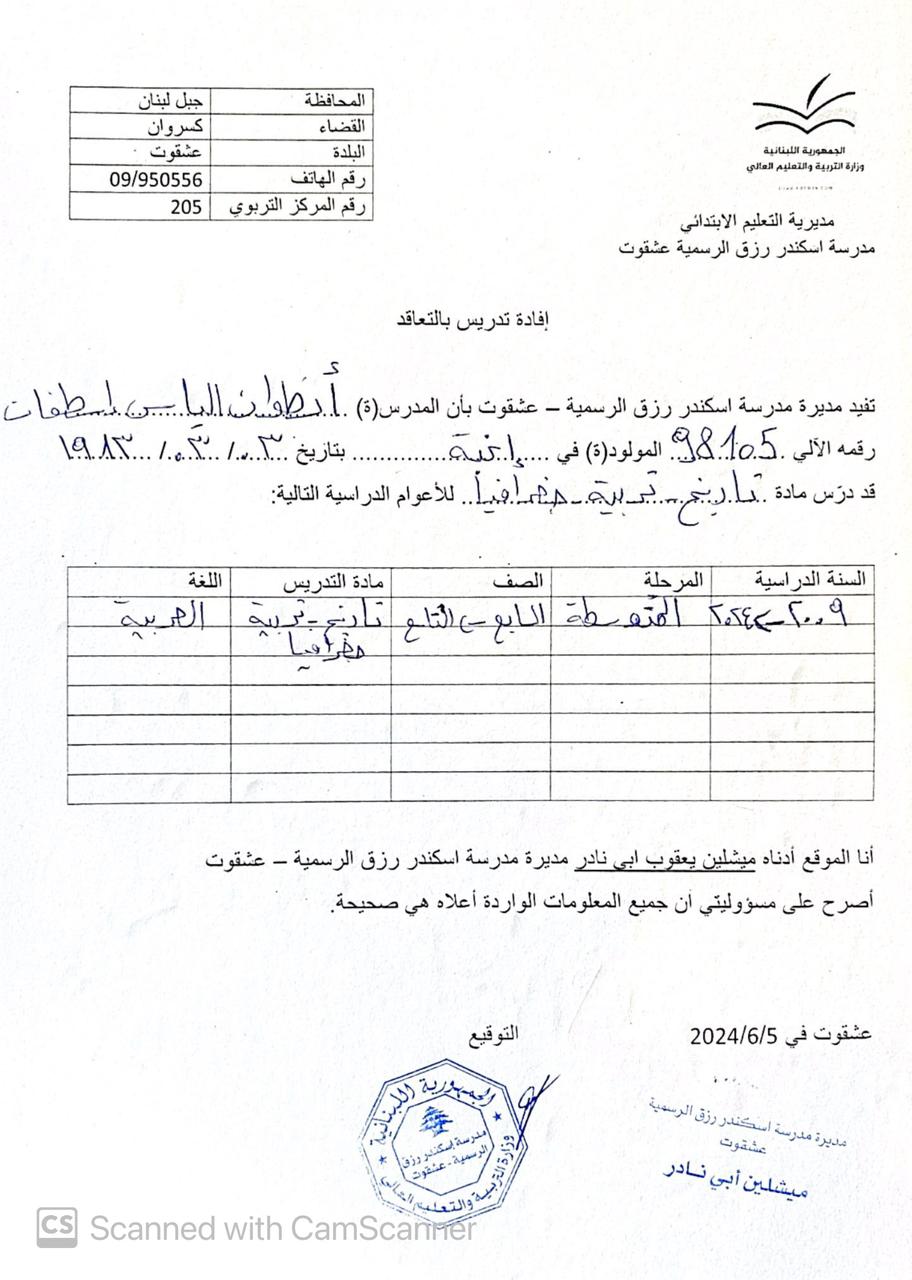 الجمهورية اللبنانية
وزارة التربية والتعليم العالي
مديرية التعليم الابتدائي
مدرسة اسكندر رزق الرسمية عشقوت
المحافظة جبل لبنان
القضاء كسروان
البلدة عشقوت
رقم الهاتف 09/950556
رقم المركز التربوي 205
إفادة تدريس بالتعاقد
تفيد مديرة مدرسة اسكندر رزق الرسمية – عشقوت بأن المدرس(ة) أنطوان الياس اسطفان
رقمه الآلي 98105 المولود(ة) في بتاريخ ٠٣/٠٣/١٩٨٣
قد درّس مادة تاريخ - تربية - جغرافيا للأعوام الدراسية التالية:
السنة الدراسية المرحلة الصف مادة التدريس اللغة
٢٠٠٩ ← ٢٠٢٤ المتوسطة السابع ← التاسع تاريخ - تربية العربية
جغرافيا
أنا الموقع أدناه ميشلين يعقوب ابي نادر مديرة مدرسة اسكندر رزق الرسمية – عشقوت
أصرح على مسؤوليتي ان جميع المعلومات الواردة أعلاه هي صحيحة.
عشقوت في 2024/6/5 التوقيع
مديرة مدرسة اسكندر رزق الرسمية
عشقوت
ميشلين أبي نادر
الجمهورية اللبنانية
مدرسة إسكندر رزق
الرسمية - عشقوت
وزارة التربية والتعليم العالي
CS Scanned with CamScanner